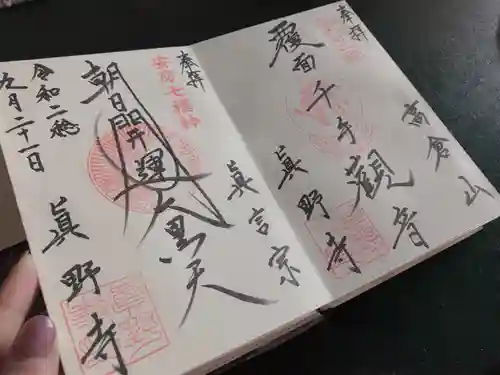 奉拝
高倉山
覆面千手観音
眞野寺
奉拝
眞言宗
安房七福神
朝日開運大黒天
令和二稔
九月二十一日
眞野寺